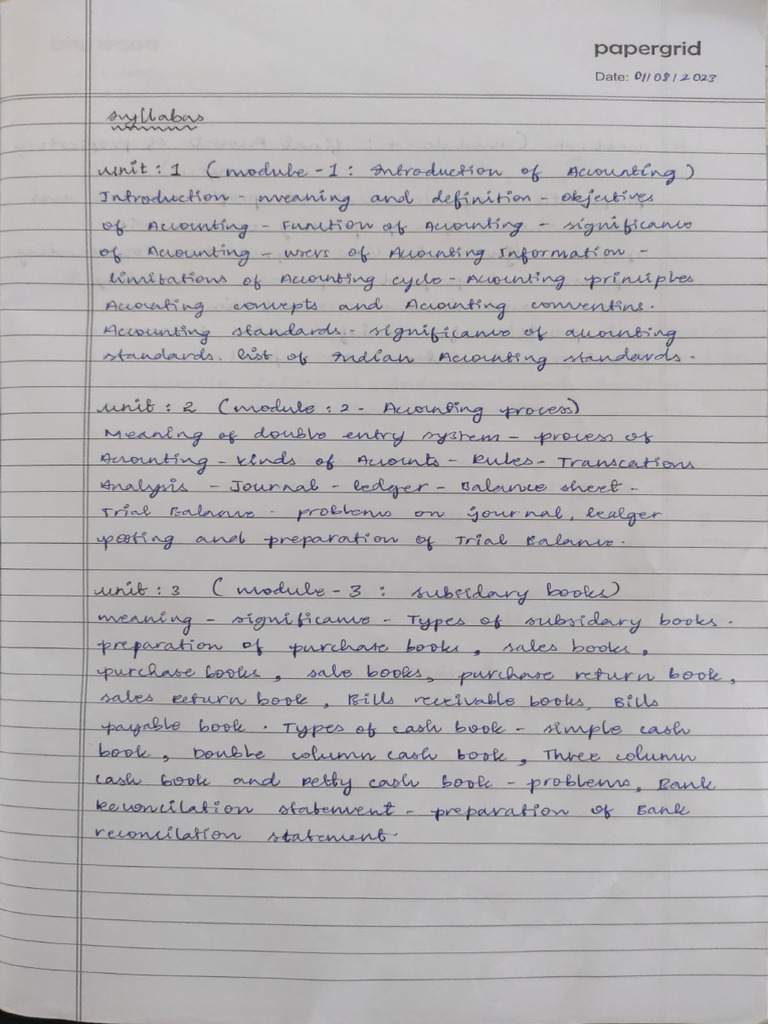 papergrid
Date: 01/08/2023
Syllabus
Unit : 1 (module - 1 : Introduction of Accounting)
Introduction - meaning and definition - objectives
of Accounting - Function of Accounting - significance
of Accounting - users of Accounting Information -
limitations of Accounting cyclo - Accounting principles
Accounting concepts and Accounting conventins.
Accounting standards - significance of accounting
standards. list of Indian Accounting standards.
Unit : 2 (module : 2 - Accounting process)
Meaning of double entry system - process of
Accounting - kinds of Accounts - Rules - Transcations
Analysis - Journal - ledger - Balance sheet -
Trial Balance - problems on journal, lealger
posting and preparation of Trial Balance.
Unit : 3 (module - 3 : subsidary books)
meaning - significance - Types of subsidary books.
preparation of purchase books, sales books,
purchase books, sale books, purchase return book,
sales return book, Bills receivable books, Bills
payable book. Types of cash book - simple cash
book, Double column cash book, Three column
cash book and petty cash book - problems, Bank
Reconcilation statement - preparation of Bank
reconcilation statement.